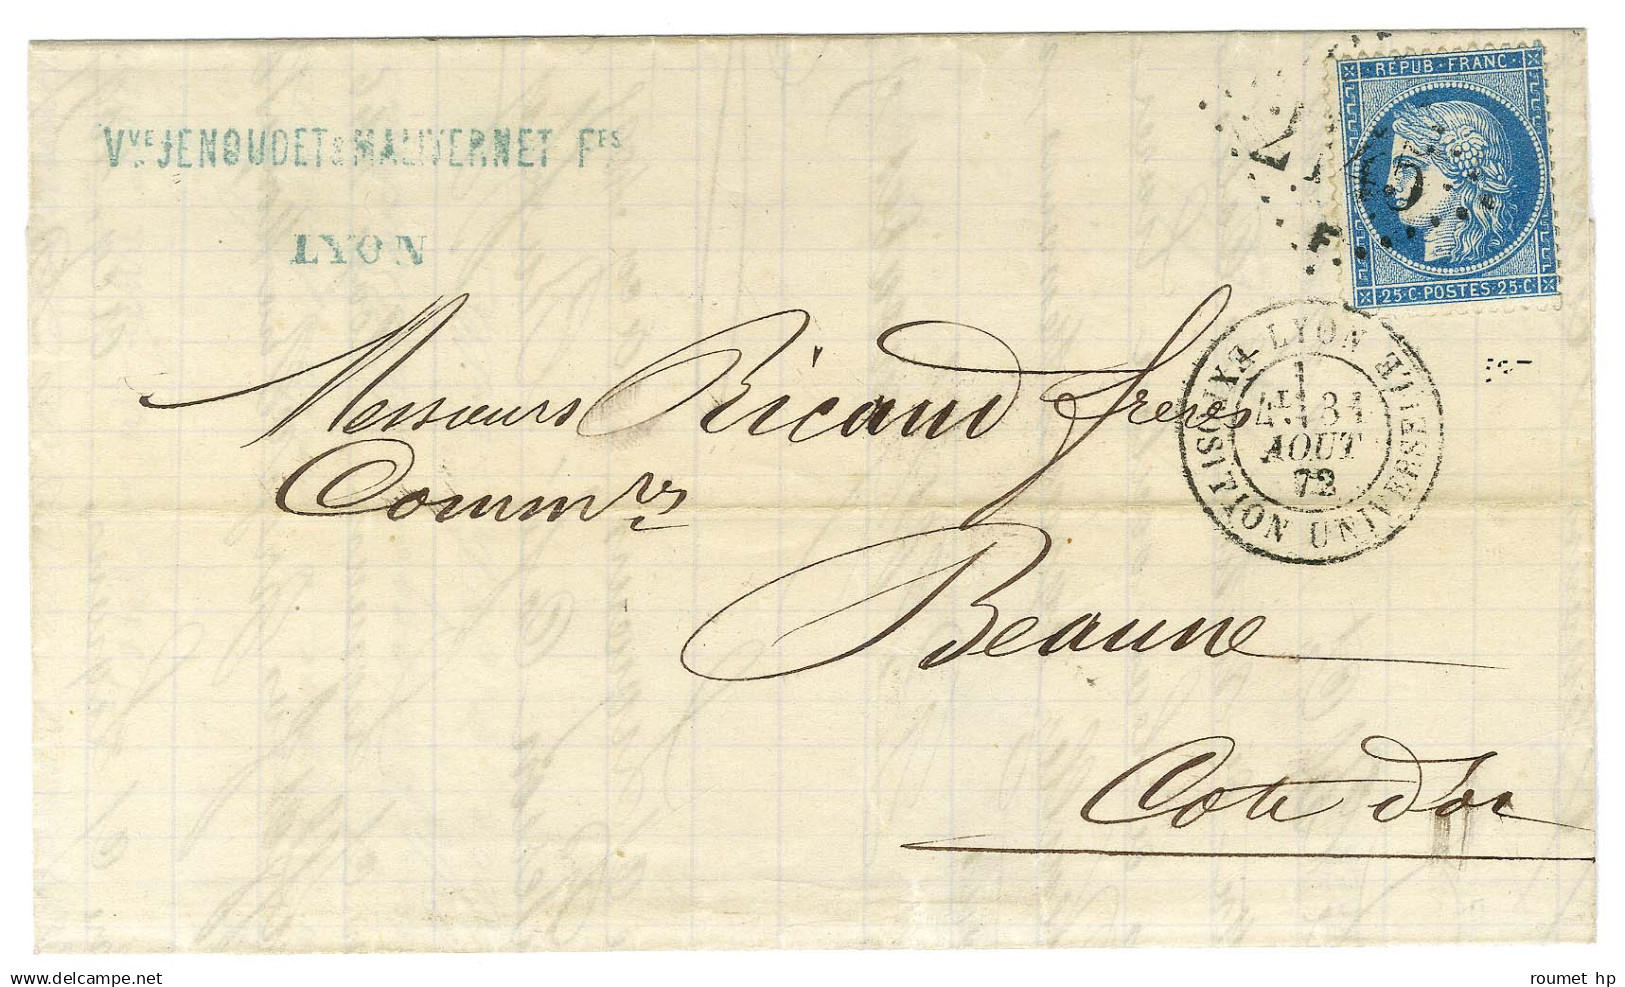 Vve JENOUDET & MALIVERNET Fes
LYON
REPUB · FRANC
25·C·POSTES·25·C
LYON
EXPOSITION UNIVERSELLE
31
AOUT
72
Messieurs Ricaud frères
Comm res
Beaune
Cote d'or
roumet hp